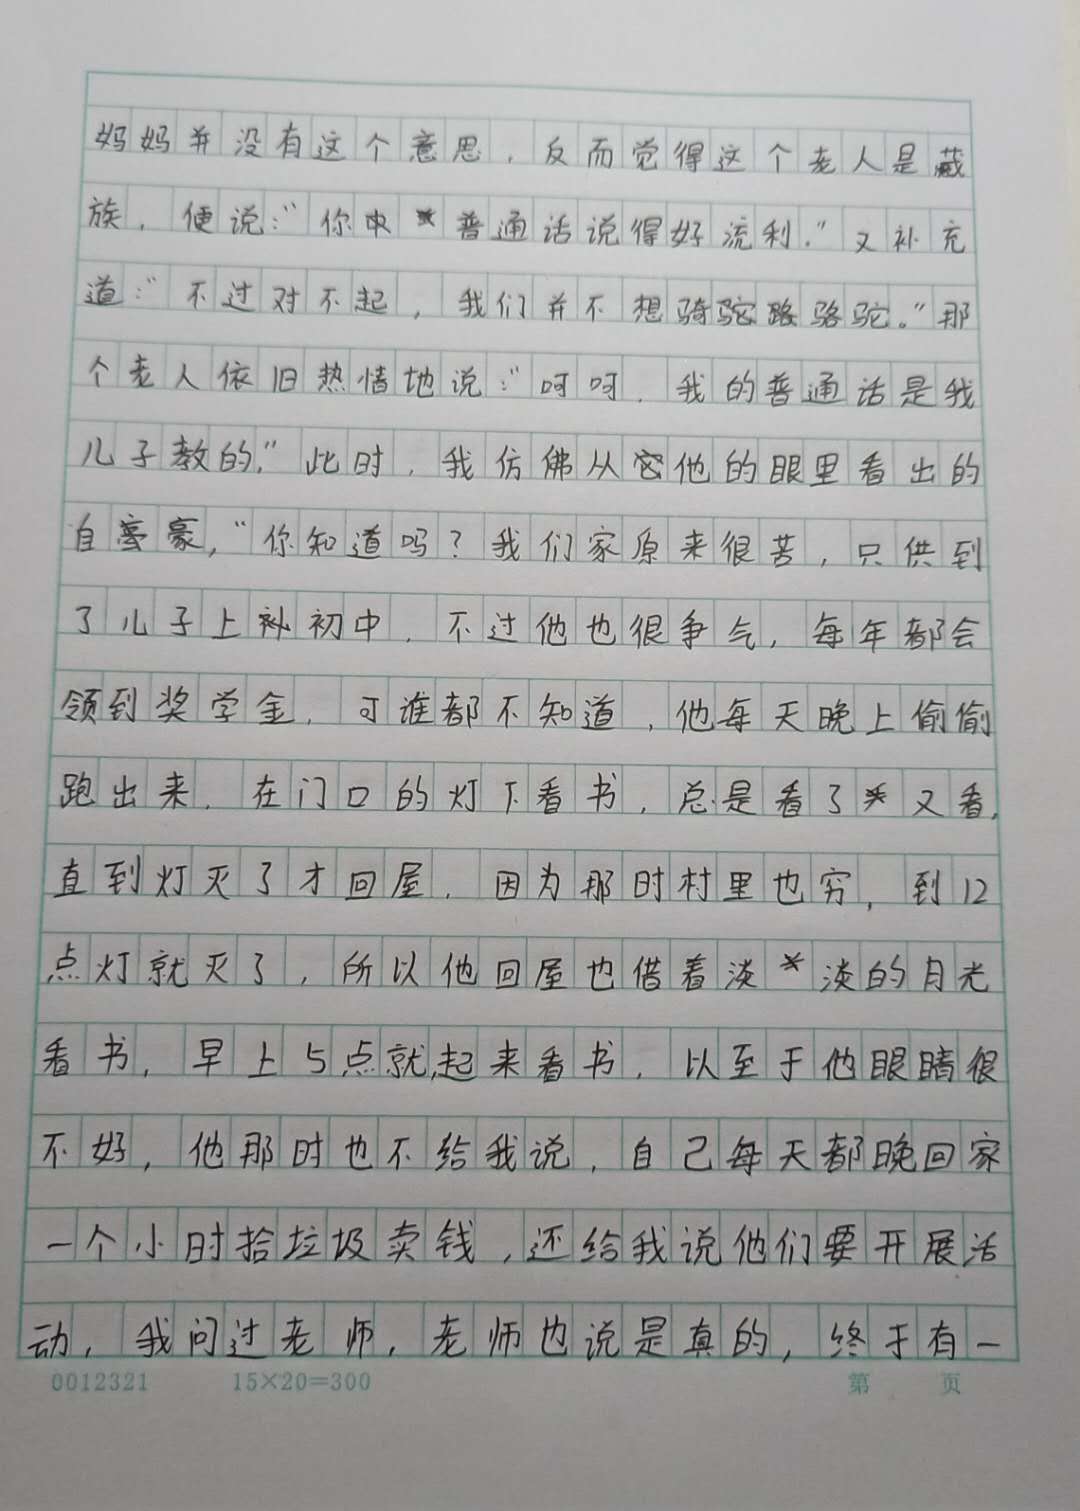 妈妈并没有这个意思，反而觉得这个老人是藏
族，便说：“你普通话说得好流利。”又补充
道：“不过对不起，我们并不想骑骆驼。”那
个老人依旧热情地说：“呵呵，我的普通话是我
儿子教的。”此时，我仿佛从他的眼里看出的
自豪，“你知道吗？我们家原来很苦，只供到
了儿子上初中，不过他也很争气，每年都会
领到奖学金，可谁都不知道，他每天晚上偷偷
跑出来，在门口的灯下看书，总是看了又看，
直到灯灭了才回屋，因为那时村里也穷，到12
点灯就灭了，所以他回屋也借着淡淡的月光
看书，早上5点就起来看书，以至于他眼睛很
不好，他那时也不给我说，自己每天都晚回家
一个小时拾垃圾卖钱，还给我说他们要开展活
动，我问过老师，老师也说是真的，终于有一
0012321 15×20=300 第 页